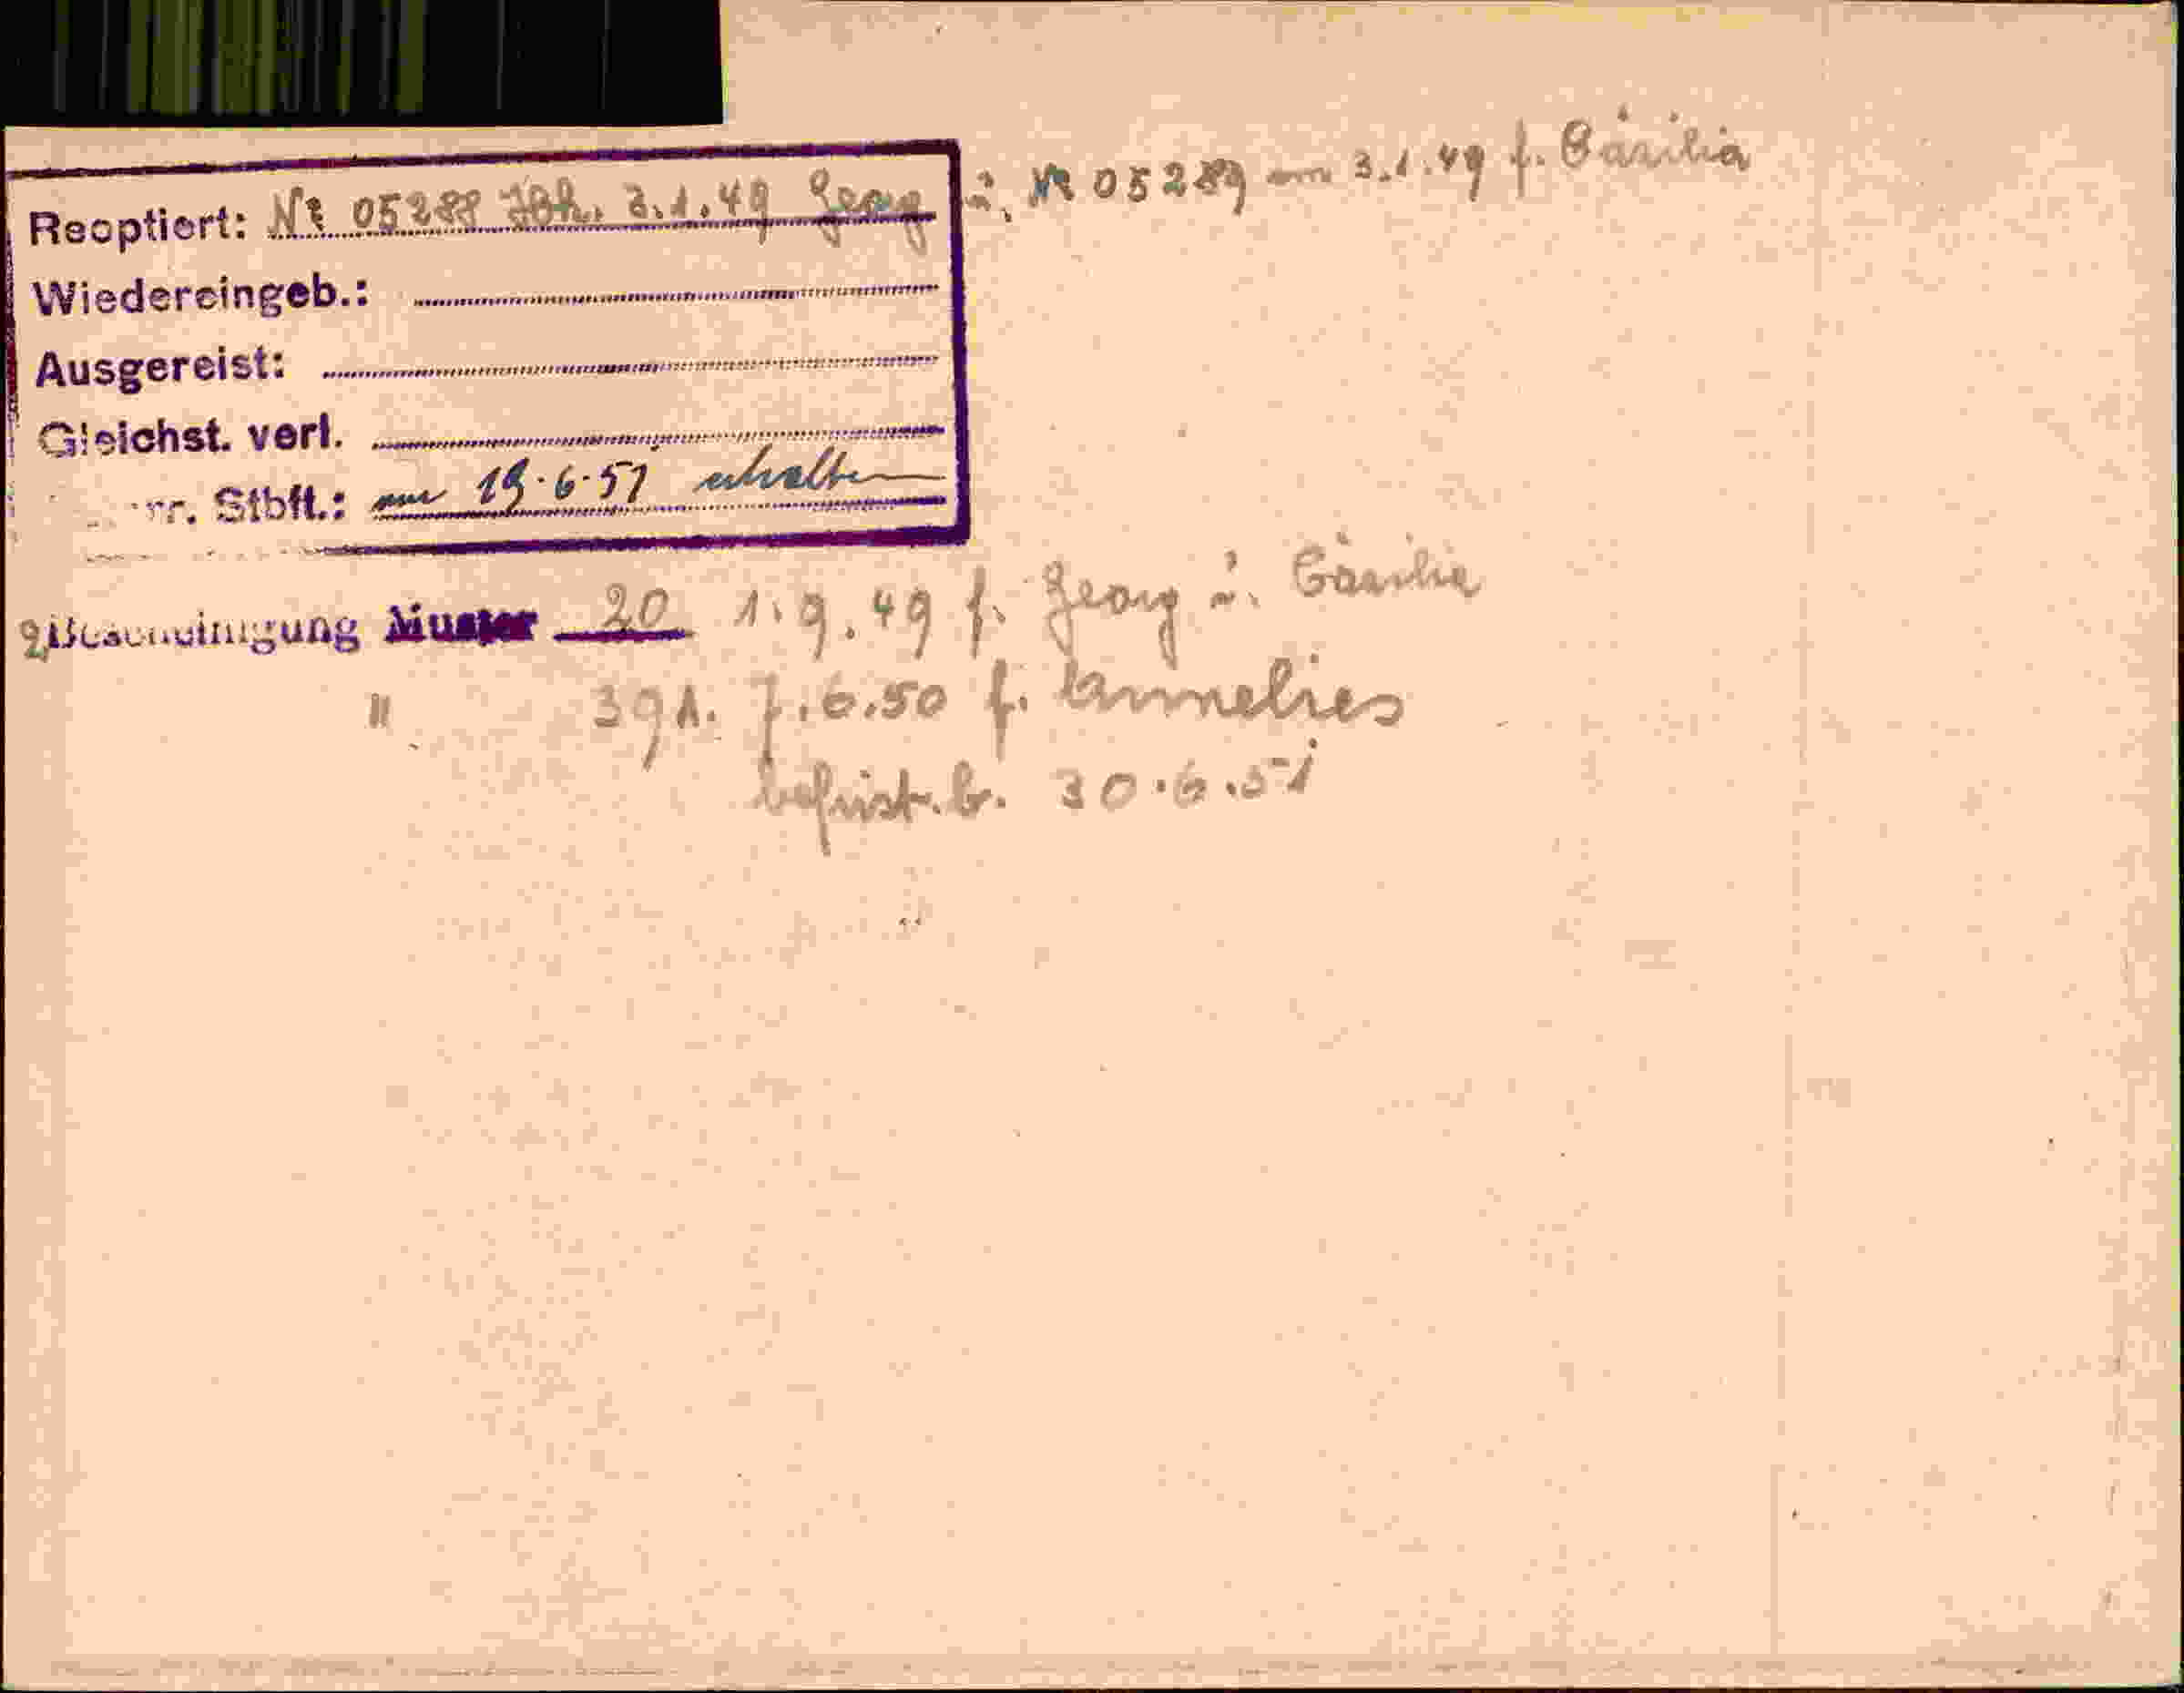 Reoptiert: Nr 05288 Joh. 3.1.49 Georg u. Nr 05289 am 3.1.49 f. Cäsilia
Wiedereingeb.:
Ausgereist:
Gleichst. verl.
rr. Stbft.: am 19.6.51 erhalten
2, Bescheinigung Muster 20 1.9.49 f. Georg u. Cäsilia
" 391. 7.6.50 f. Annelies
befrist. b. 30.6.51